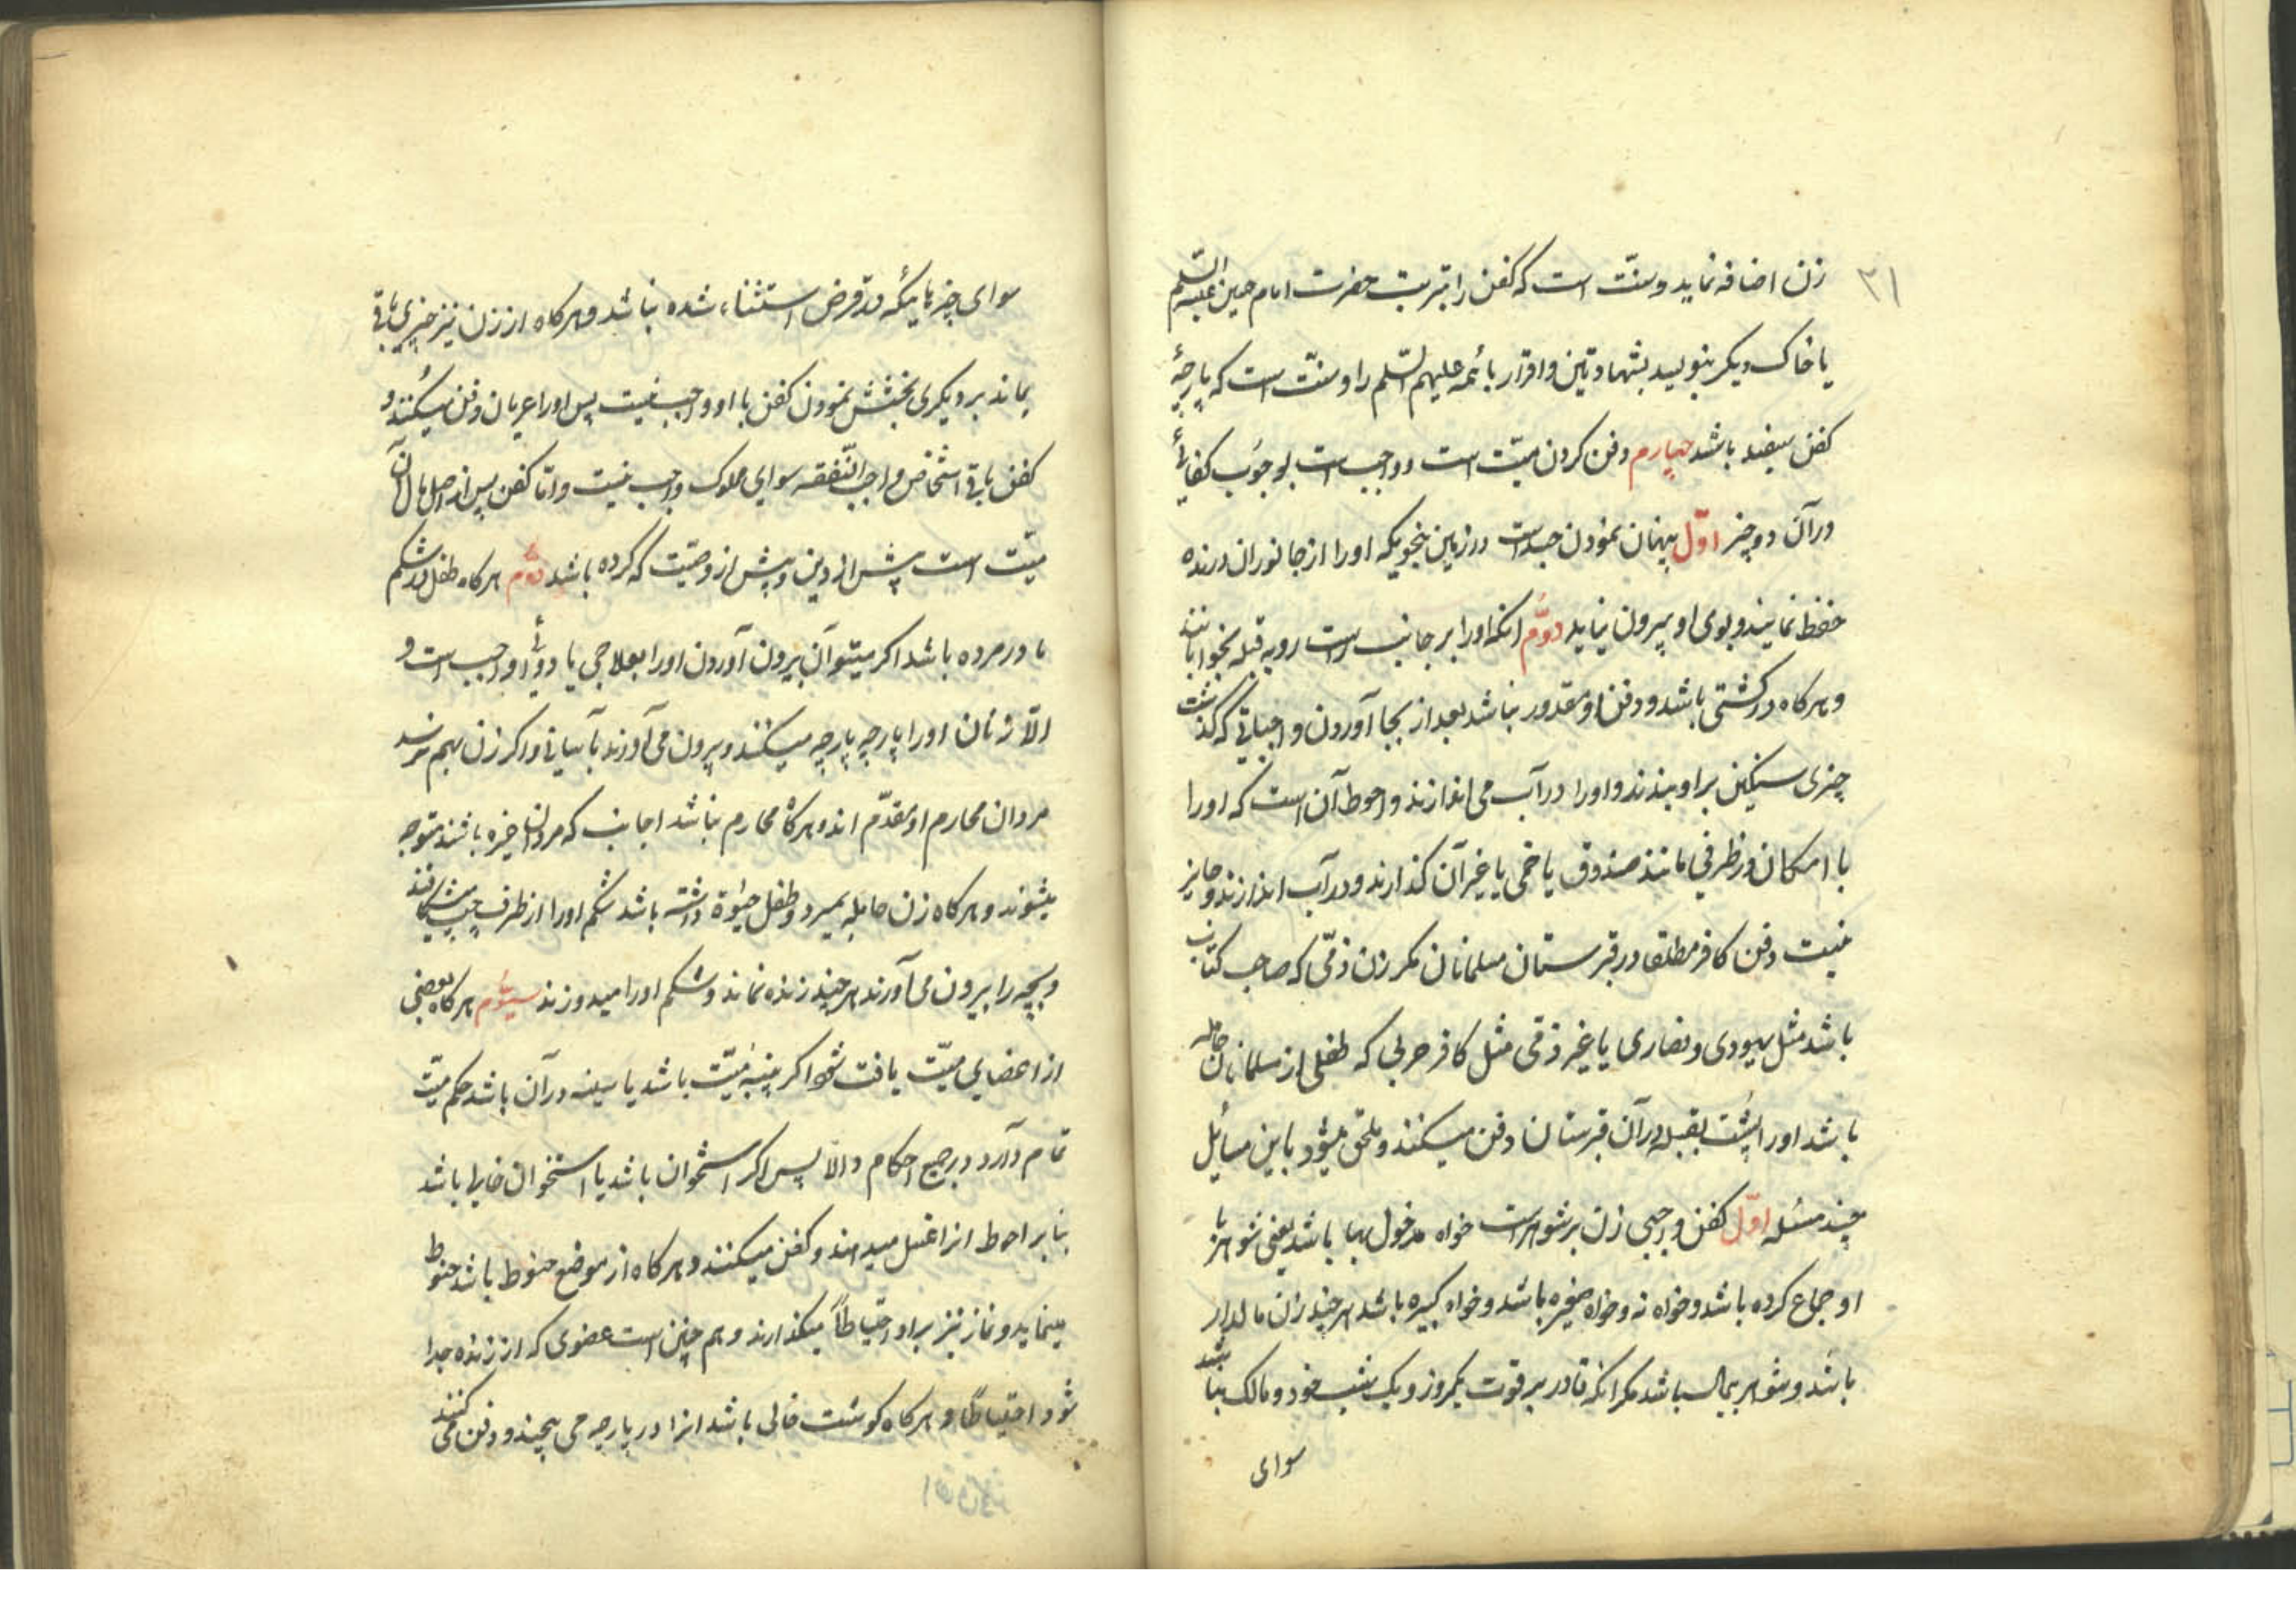 ۲۱
زن اضافه نماید و سنّت است که کفن را بتربت حضرت امام حسین علیه السّلم
یا خاک دیکر بنویسد بشهادتین و اقرار بائمه علیهم السّلم را و سنّت است که پارچهٔ
کفن سفید باشد چهارم دفن کردن میّت است و واجب است بوجوب کفائی
و در آن دو چیز اوّل پنهان نمودن جسد است در زمین بنحویکه او را از جانوران درنده
حفظ نمایند و بوی او بیرون نیاید دوّم انکه او را بر جانب راست رو به قبله بخوابانند
و هرکاه در کشتی باشد و دفن او مقدور نباشد بعد از بجا آوردن واجباتی که کذشت
چیزی سنکین بر او ببندند و او را در آب می اندازند و احوط آن است که او را
با امکان در ظرفی مانند صندوق یا خمی یا غیر آن کذارند و در آب اندازند و جایز
نیست دفن کافر مطلقا در قبرستان مسلمانان مکر زن ذمّی که صاحب کتاب
باشد مثل یهودی و نصاری یا غیر ذمّی مثل کافر حربی که طفلی از مسلمانان حامله
باشد او را پشت بقبله در آن قبرستان دفن میکنند و ملحق میشود باین مسائل
چند مسئله اوّل کفن واجبی زن بر شوهر است خواه مدخول بها باشد یعنی شوهر با
او جماع کرده باشد و خواه نه و خواه صغیره باشد و خواه کبیره باشد هر چند زن مالدار
باشد و شوهر بیمال باشد مکر انکه قادر بر قوت یکروز و یک شب خود و مالک نباشد
سوای
سوای چیزهائیکه در قرض استثناء شده نباشد و هرکاه از زن نیز چیزی باقی
نماند بر دیکری بخشش نمودن کفن با او واجب نیست پس او را عریان دفن میکنند و
کفن باقی اشخاص واجب النّفقه سوای مملوک واجب نیست و امّا کفن پس از اصل مال آن
میّت است پیش از دین و پیش از وصیّت که کرده باشد دوّم هرکاه طفل در شکم
مادر مرده باشد اکر میتوان بیرون آوردن او را بعلاجی یا دوائی واجب است و
الّا زنان او را پارچه پارچه میکنند و بیرون می آورند بآسانی و اکر زن بهم نرسد
مردان محارم او مقدّم اند و هرکاه محارم نباشد اجانب که مردان خیره باشند متوجه
میشوند و هرکاه زن حامله بمیرد و طفل حیٰوة داشته باشد شکم او را از طرف چپ میشکافند
و بچه را بیرون می آورند هر چند زنده نماند و شکم او را میدوزند سیّوم هرکاه بعضی
از اعضای میّت یافت شود اکر سینهٔ میّت باشد یا سینه در آن باشد حکم میّت
تمام دارد در جمیع احکام و الّا پس اکر استخوان باشد یا استخوان خالی باشد
بنابر احوط انرا غسل میدهند و کفن میکنند و هرکاه از موضع حنوط باشد حنوط
مینماید و نماز نیز بر او احتیاطاً میکذارند و هم چنین است عضوی که از زنده جدا
شود احتیاطاً و هرکاه کوشت خالی باشد انرا در پارچه می پیچند و دفن می کنند